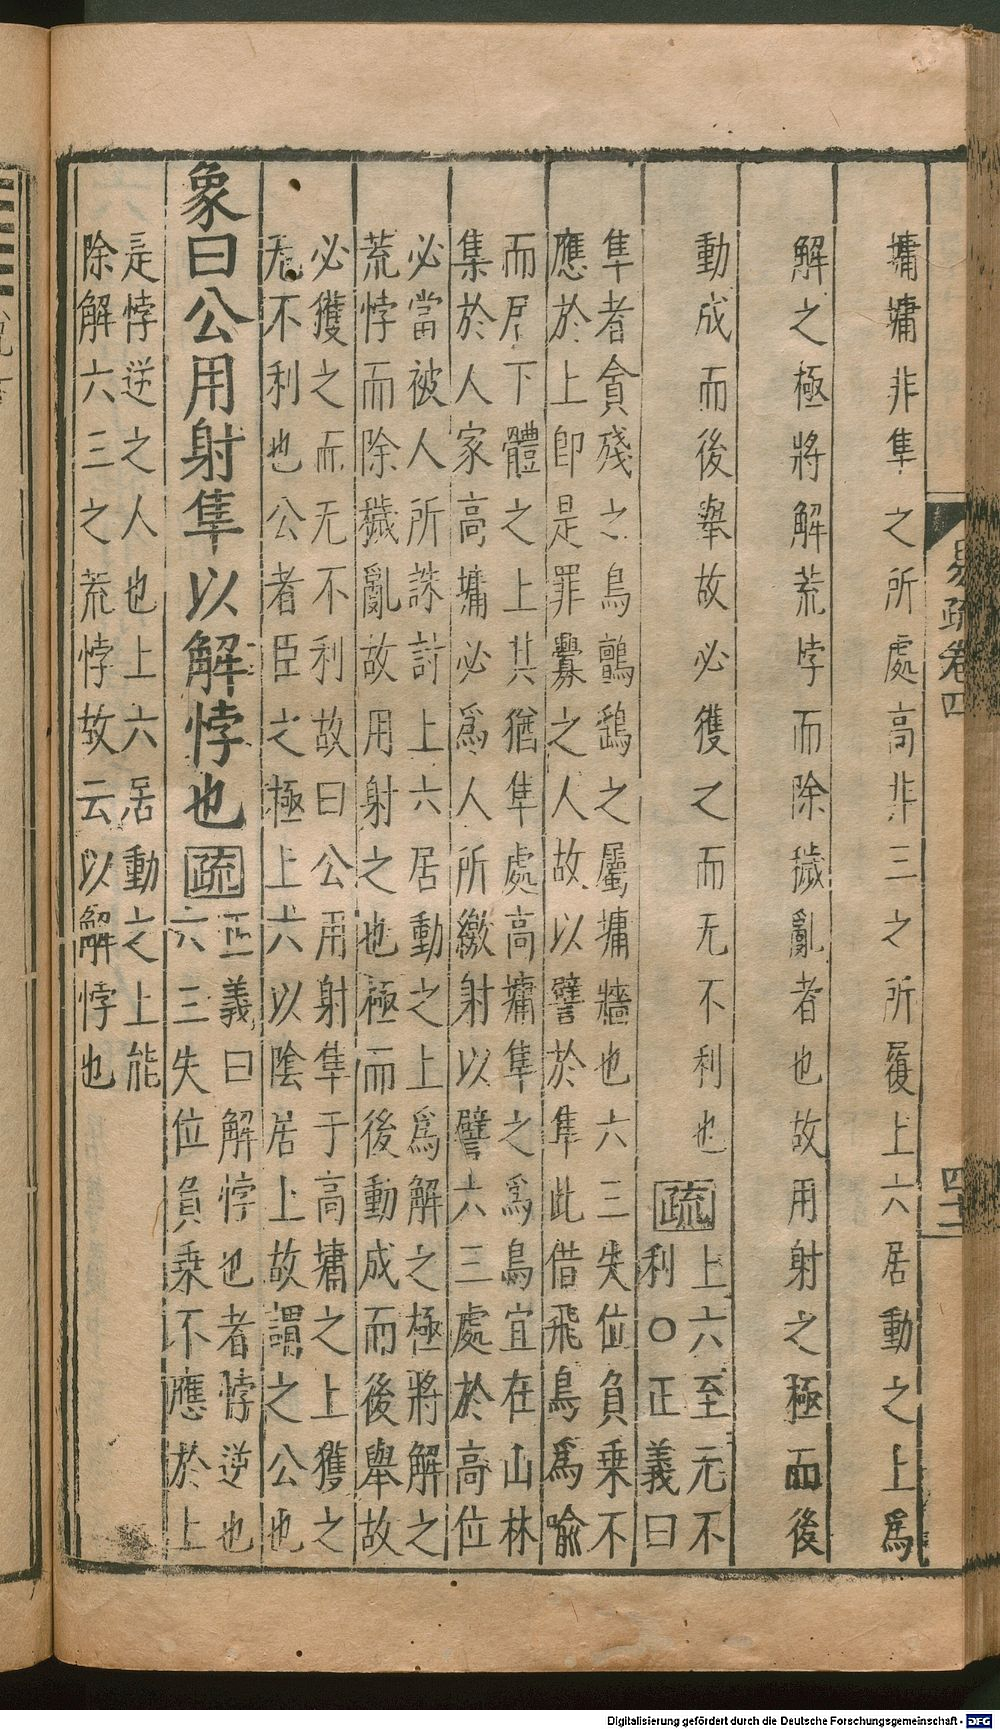 墉墉非隼之所處高非三之所履上六居動之上爲
解之極將解荒悖而除穢亂者也故用射之極而後
動成而後舉故必獲之而无不利也疏上六至无不
利○正義曰
隼者貪殘之鳥鸇鷂之屬墉牆也六三失位負乗不
應於上卽是罪釁之人故以譬於隼此借飛鳥爲喻
而居下體之上其猶隼處高墉隼之爲鳥宜在山林
集於人家高墉必爲人所繳射以譬六三處於高位
必當被人所誅討上六居動之上爲解之極將解之
荒悖而除穢亂故用射之也極而後動成而後舉故
必獲之而无不利故曰公用射隼于高墉之上獲之
无不利也公者臣之極上六以陰居上故謂之公也
象曰公用射隼以解悖也疏正義曰解悖也者悖逆也
六三失位負乗不應於上
是悖逆之人也上六居動之上能
除解六三之荒悖故云以解悖也
易疏卷四
四十二
Digitalisierung gefördert durch die Deutsche Forschungsgemeinschaft - DFG